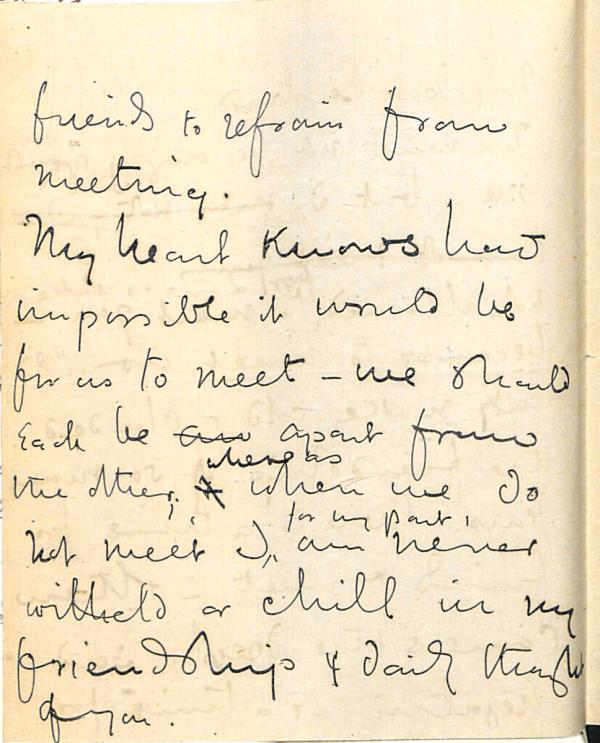 friends to refrain from
meeting.
My heart knows how
impossible it would be
for us to meet – we should
each be are apart from
whereas
the other; & when we do
for my part,
not meet I, am never
witheld or chill in my
friendship & daily thought
of you.